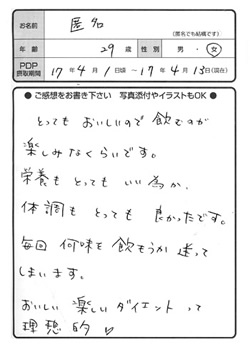 お名前 匿名 (匿名でも結構です)
年齢 29歳 性別 男・女
PDP摂取期間 17年4月1日頃〜17年4月13日(現在)
● ご感想をお書き下さい 写真添付やイラストもOK ●
とっても おいしいので 飲むのが
楽しみなくらいです。
栄養も とっても いい為か、
体調も とっても 良かったです。
毎回 何味を 飲もうか 迷って
しまいます。
おいしい 楽しい ダイエット って
理想的♡